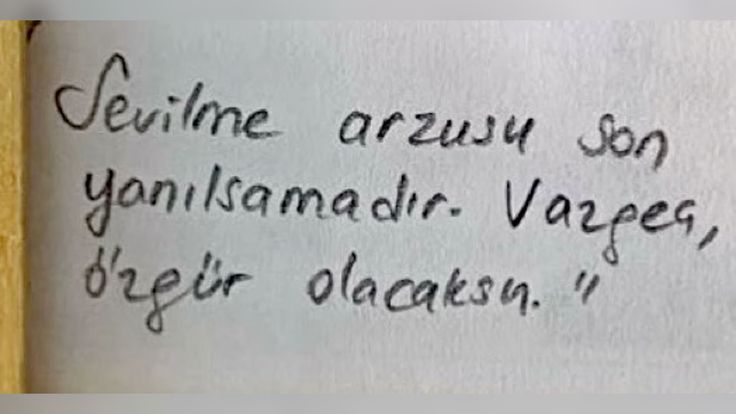 Sevilme arzusu son
yanılsamadır. Vazgeç,
özgür olacaksın."